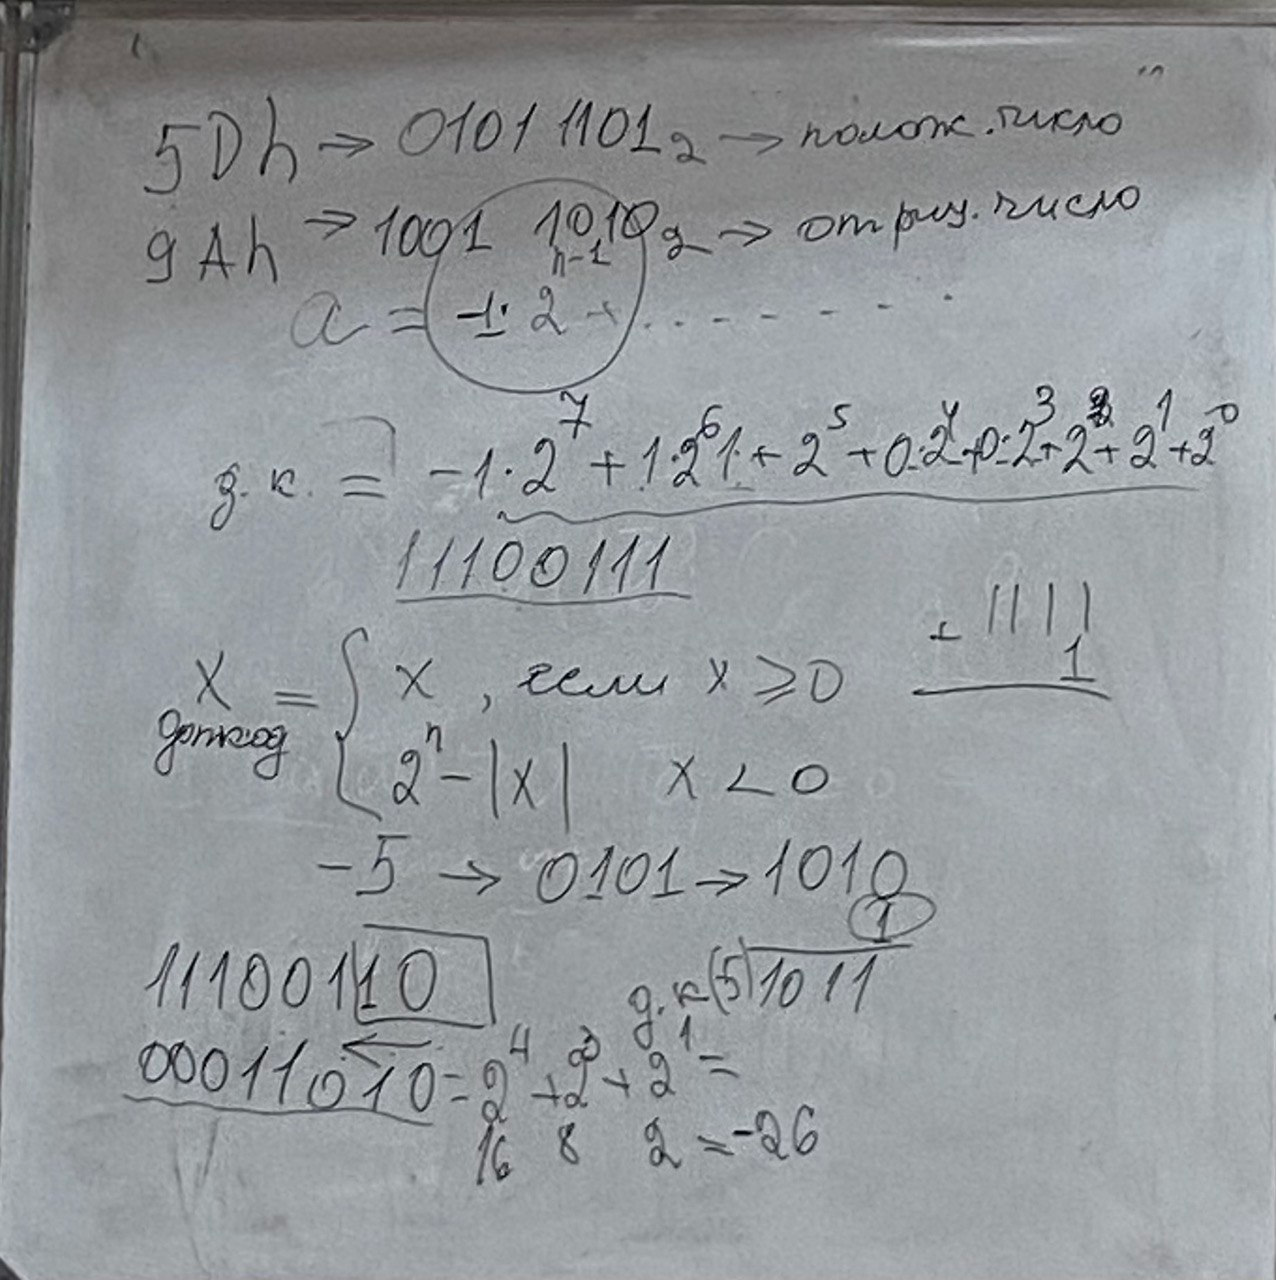 5Dh → 0101 1101₂ → полож. число
9Ah → 1001 1010₂ → отриц. число
a = -1·2ⁿ⁻¹ + . . - - - - - ·
д.к. = -1·2⁷ + 1·2⁶ 1·+ 2⁵ + 0·2⁴+0·2³+2²+2¹+2⁰
11100111
+ 1111
1
X допкод = { x , если x ≥ 0
2ⁿ - |x| x < 0
-5 → 0101 → 1010
1
д.к(-5) 1011
11100110
00011010 = 2⁴ + 2³ + 2¹ =
16 8 2 = -26